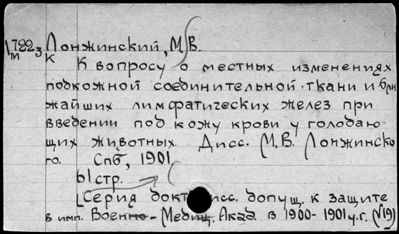 1 722 3 Лонжинский, М.В.
м К
К вопросу о местных изменениях
подкожной соединительной ткани и бли
жайших лимфатических желез при
введении под кожу крови у голодаю-
щих животных. Дисс. М.В. Лонжинско
го. Спб, 1901.
61 стр.
[Серия докт. дисс. допущ. к защите
в имп. Военно-Медиц. Акад. в 1900-1901 у.г. (№19)